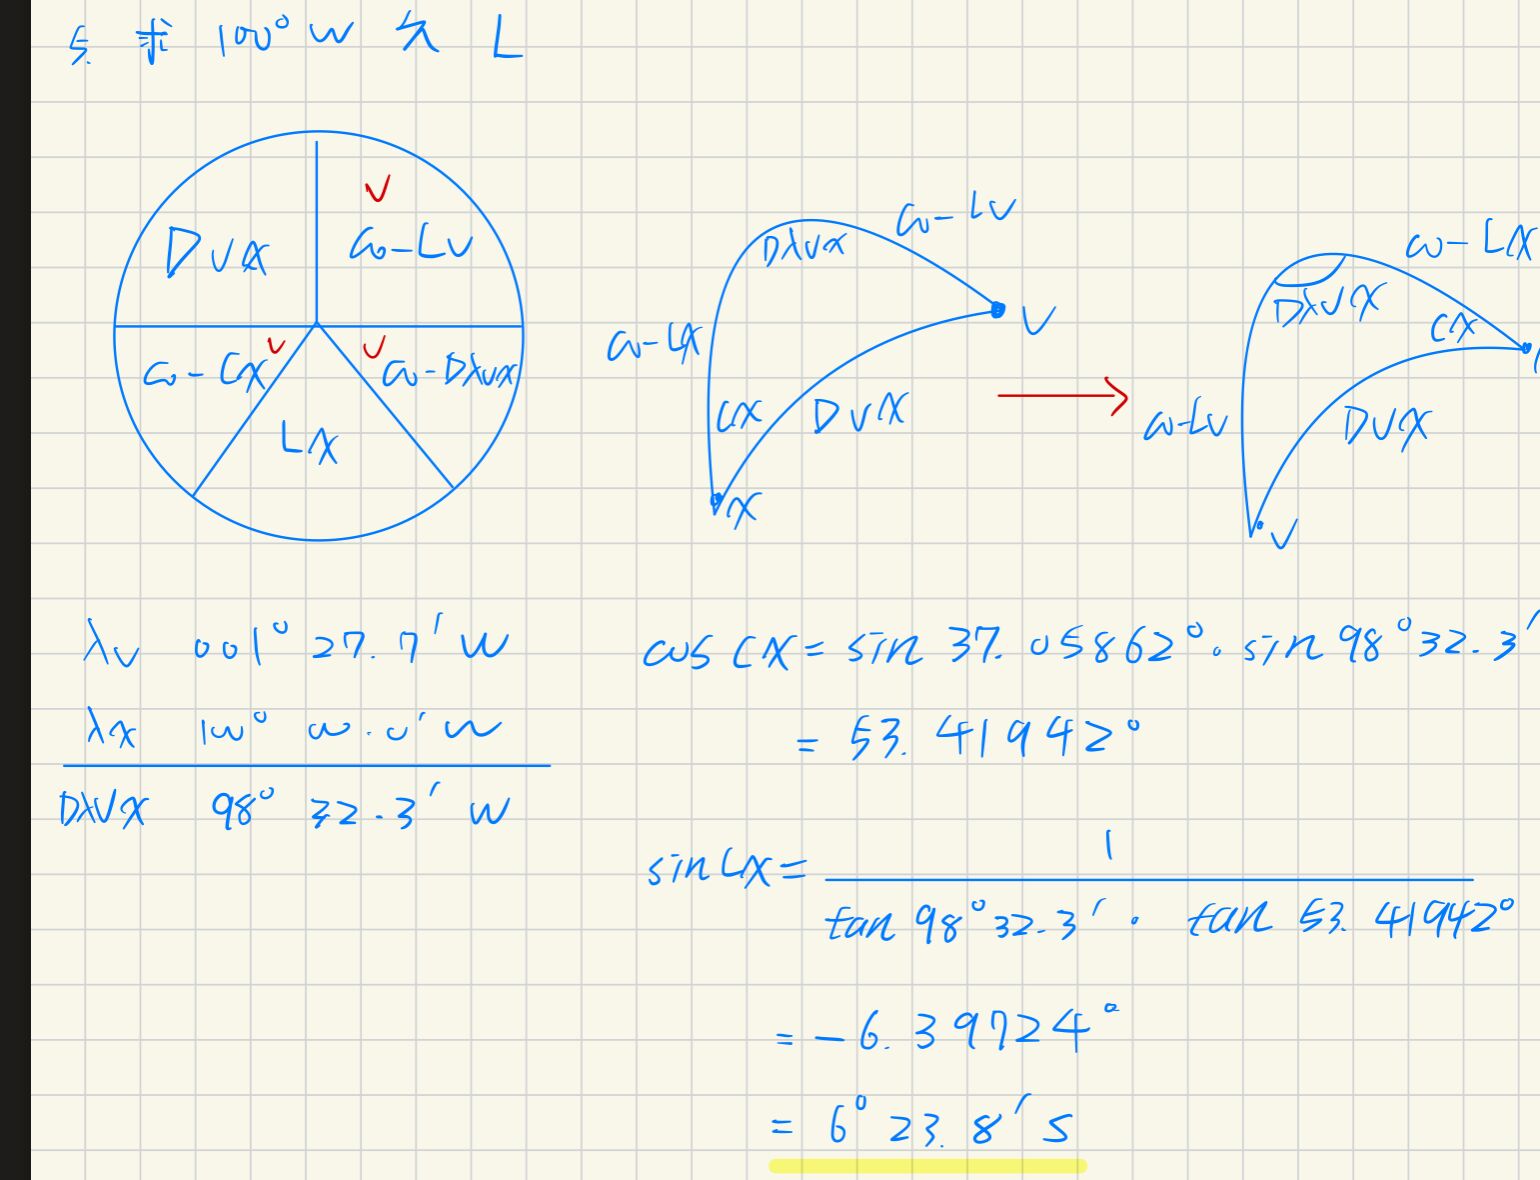 5. 求 100° W 矢 L
DVX
co-LV
co-CX
co-DλVX
LX
co-LV
DλVX
co-LX
V
CX
DVX
X
co-LX
DλVX
CX
co-LV
DVX
V
λV 001° 27.7' W
λX 100° 00.0' W
DλVX 98° 32.3' W
cos CX = sin 37.05862° · sin 98° 32.3'
= 53.41942°
sin LX = 1
tan 98° 32.3' · tan 53.41942°
= -6.39724°
= 6° 23.8' S